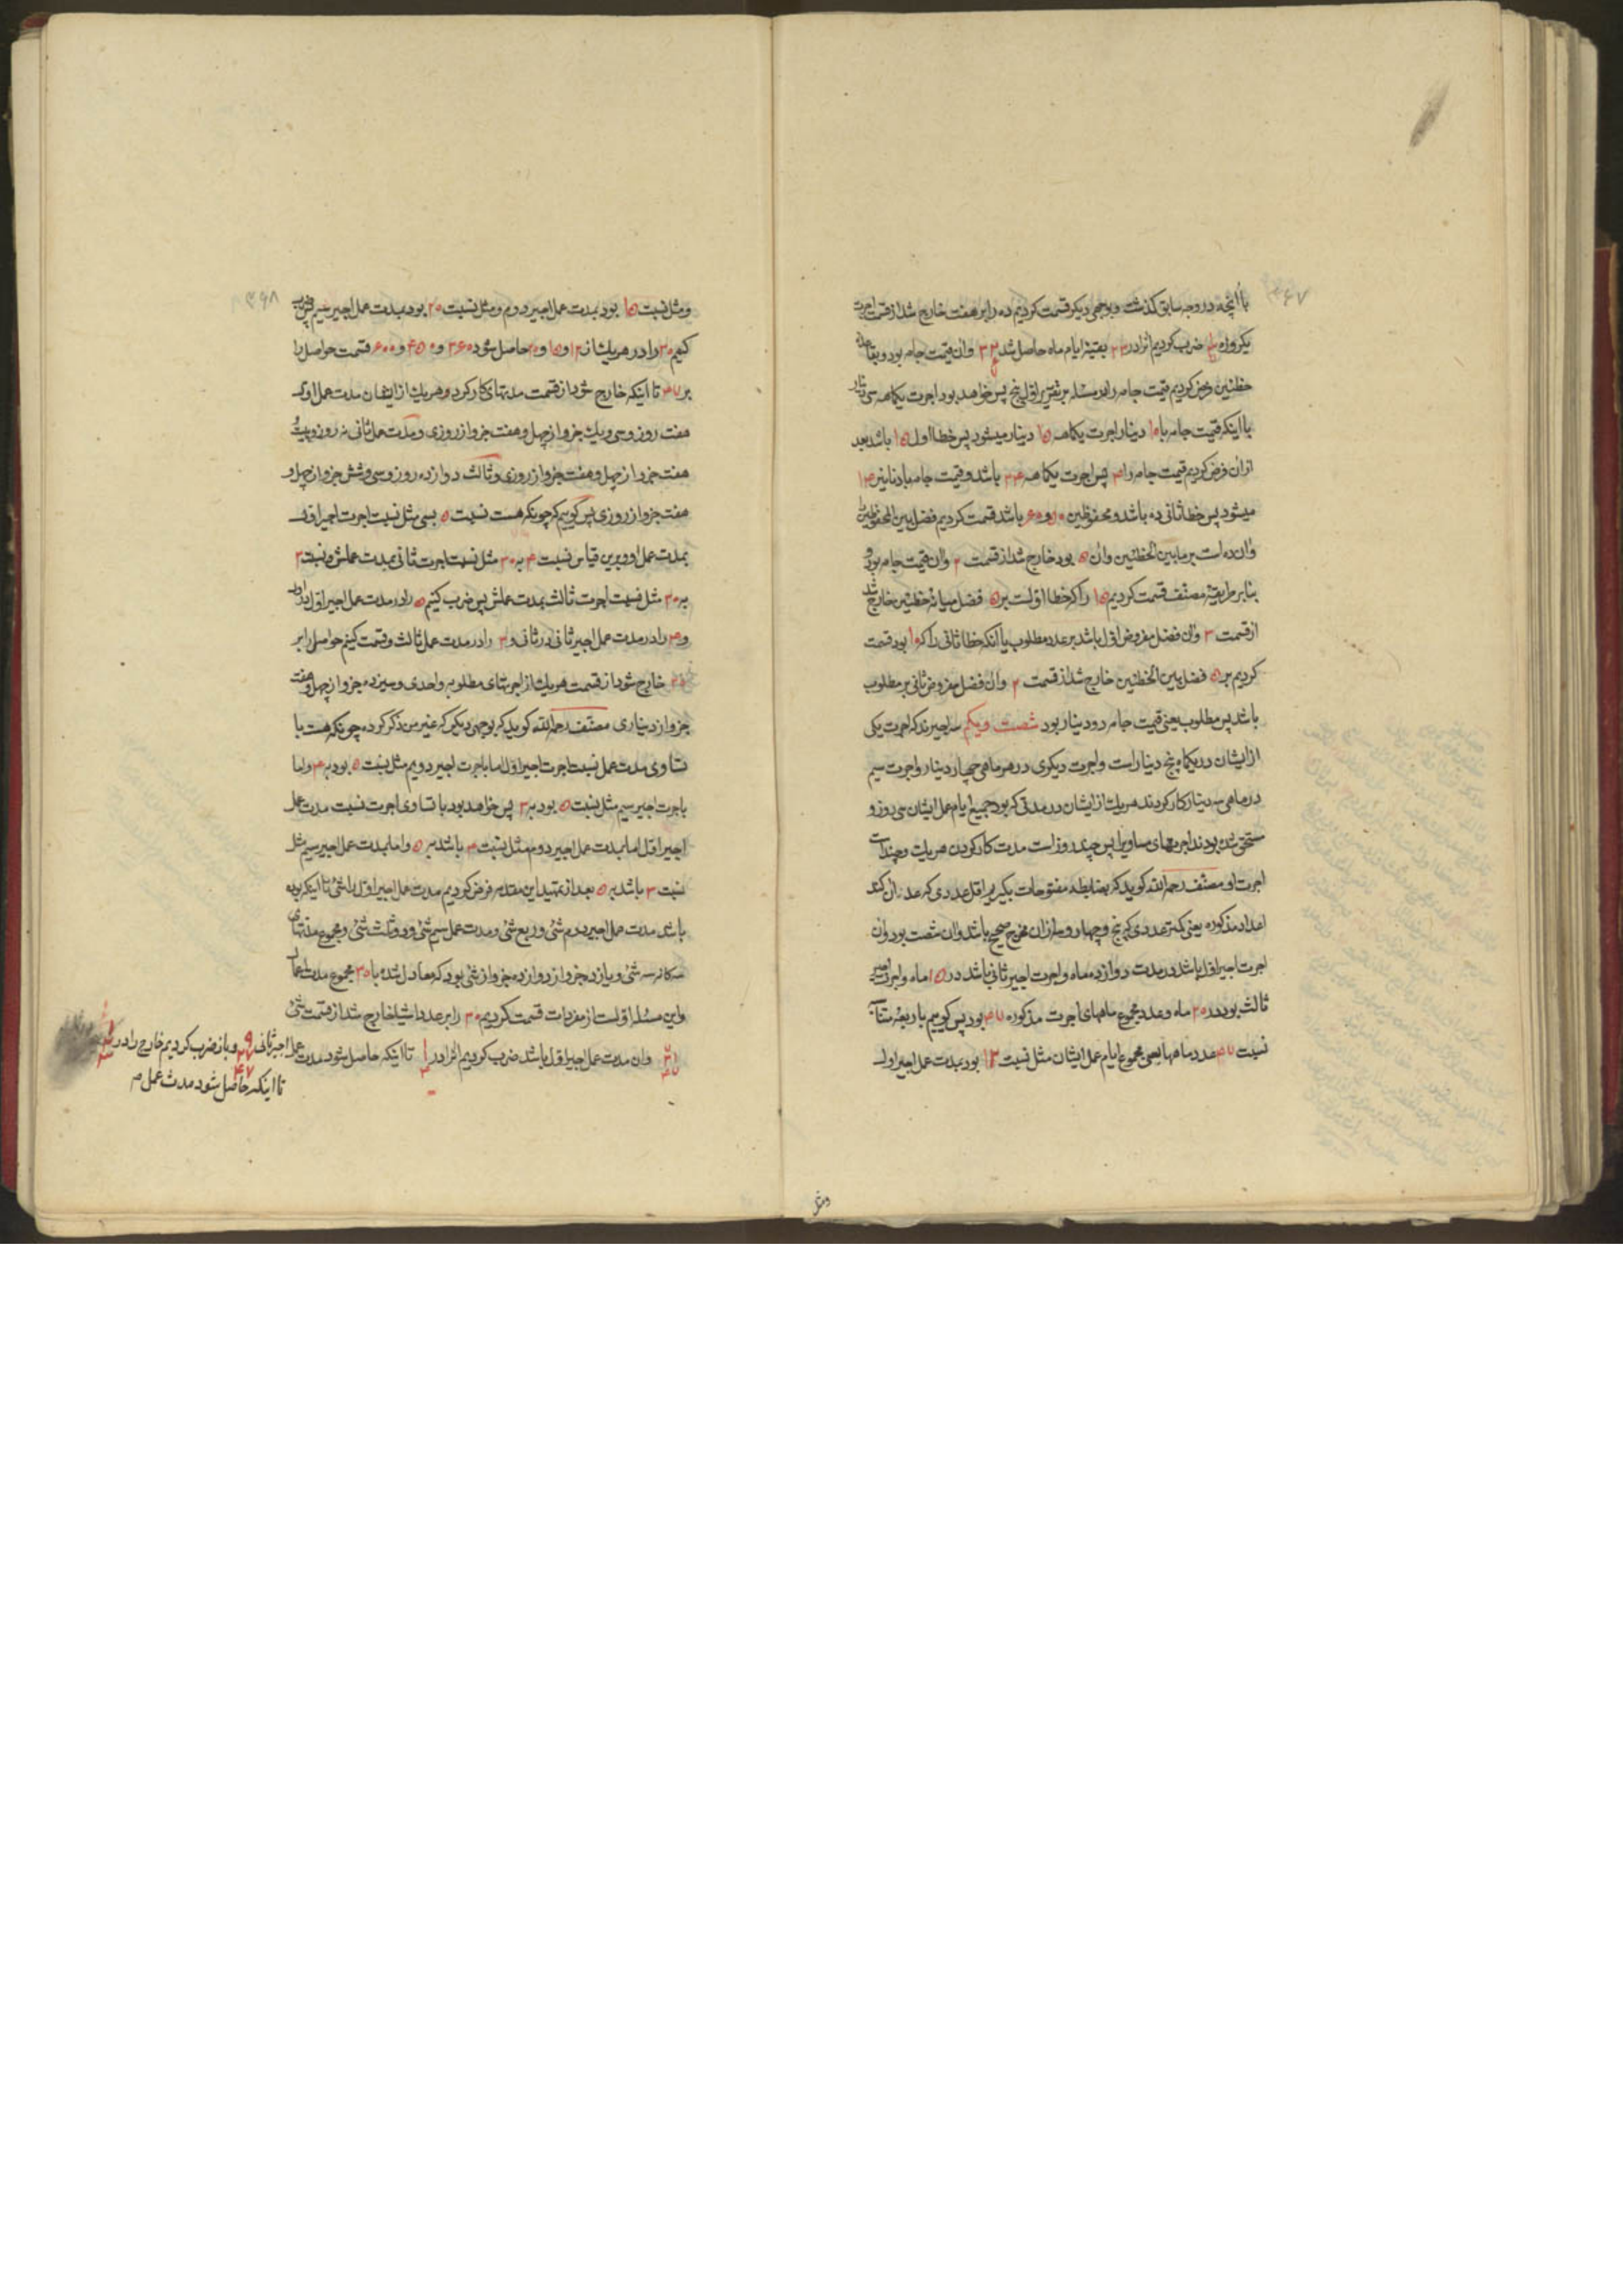 ۳۶۷
با آنچه در وجه سابق گذشت و بوجهی دیگر قسمت کردیم ده را بر هفت خارج شد از قسمت اجرت
یکروزه ضرب کردیم انرا در ۲۳ بقیهٔ ایام ماه حاصل شد وان قیمت جامه بود و بقاعدهٔ
خطئین فرض کردیم قیمت جامه را در مسئله بر تقریر اول پنج پس خواهد بود اجرت یکماهه سی دینار
با اینکه قیمت جامه با ۱۰ دینار اجرت یکماهه ۱۵ دینار میشود پس خطا اول ۱۵ باشد بعد
ازان فرض کردیم قیمت جامه را ۴ پس اجرت یکماهه ۲۴ باشد و قیمت جامه با دنانیر ۱۴
میشود پس خطا ثانی ده باشد و محفوظین ۵۰ و ۶۰ باشد قسمت کردیم فضل بین المحفوظین
وان ده است بر ما بین الخطئین وان ۵ بود خارج شد از قسمت ۲ وان قیمت جامه بود و
بنابر طریقهٔ مصنف قسمت کردیم ۱۵ را که خطا اولست بر ۵ فضل میانهٔ خطئین خارج شد
از قسمت ۳ وان فضل مفروض اول باشد بر عدد مطلوب یا انکه خطا ثانی را که ۱۰ بود قسمت
کردیم بر ۵ فضل بین الخطئین خارج شد از قسمت ۲ وان فضل مفروض ثانی بر مطلوب
باشد پس مطلوب یعنی قیمت جامه دو دینار بود شصت ویکم سه اجیرند که اجرت یکی
از ایشان در یکماه پنج دینار است و اجرت دیگری در هر ماهی چهار دینار و اجرت سیم
در ماهی سه دینار کار کردند هریک از ایشان در مدتی که بود جمیع ایام عمل ایشان سی روز و
مستحق شده بودند اجرتهای مساویرا پس چند روز است مدت کار کردن هریک و چند است
اجرت او مصنف رحمه الله گوید که بضابطه مفتوحات بگیریم اقل عددی که عد ان کند
اعداد مذکوره یعنی کمتر عددی که پنج و چهار و سه ازان مخرج صحیح باشد وان شصت بود وان
اجرت اجیر اول باشد در مدت دوازده ماه و اجرت اجیر ثانی باشد در ۱۵ ماه و اجرت اجیر
ثالث بود در ۲۰ ماه وعدد مجموع ماههای اجرت مذکوره ۴۷ بود پس گوییم باربعهٔ متناسبه
نسبت ۴۷ عدد ماهها بسی مجموع ایام عمل ایشان مثل نسبت ۱۲ بود بمدت عمل اجیر اول
ومثل
۳۶۸
ومثل نسبت ۱۵ بود بمدت عمل اجیر دوم ومثل نسبت ۲۰ بود بمدت عمل اجیر سیم پس ضرب
کنیم ۳۰ را در هریک از ۱۲ و ۱۵ و ۲۰ حاصل شود ۳۶۰ و ۴۵۰ و ۶۰۰ قسمت حواصل را
بر ۴۷ تا اینکه خارج شود از قسمت مدتهای کار کرد هریک از ایشان مدت عمل اول
هفت روز و سی ویک جزو از چهل و هفت جزو از روزی و مدت عمل ثانی نه روز و بیست و
هفت جزو از چهل و هفت جزو از روزی و ثالث دوازده روز و سی وشش جزو از چهل و
هفت جزو از روزی پس گوییم که چونکه هست نسبت ۵ بسی مثل نسبت اجرت اجیر اول
بمدت عمل او و برین قیاس نسبت ۴ به ۳۰ مثل نسبت اجرت ثانی بمدت عملش و نسبت ۳
به ۳۰ مثل نسبت اجرت ثالث بمدت عملش پس ضرب کنیم ۵ را در مدت عمل اجیر اول در اول
و ۴ را در مدت عمل اجیر ثانی در ثانی و ۳ را در مدت عمل ثالث و قسمت کنیم حواصل را بر
۳۰ خارج شود از قسمت هریک از اجرتهای مطلوبه واحدی و سیزده جزو از چهل و هفت
جزو از دیناری مصنف رحمه الله گوید که بوجهی دیگر که غیر من ذکر کرده چونکه هست با
تساوی مدت عمل نسبت اجرت اجیر اول اما باجرت اجیر دویم مثل نسبت ۵ بود به ۴ واما
باجرت اجیر سیم مثل نسبت ۵ بود به ۳ پس خواهد بود با تساوی اجرت نسبت مدت عمل
اجیر اول اما بمدت عمل اجیر دوم مثل نسبت ۴ باشد به ۵ واما بمدت عمل اجیر سیم مثل
نسبت ۳ باشد به ۵ بعد از تمهید این مقدمه فرض کردیم مدت عمل اجیر اول را شئ تا اینکه بوده
باشد مدت عمل اجیر دوم شئ و ربع شئ و مدت عمل سیم شئ و دو ثلث شئ و مجموع مدتهای
سه گانه سه شئ و یازده جزو از دوازده جزو از شئ بود که معادل شده با ۳۰ مجموع مدت اعمال
واین مسئله اولست از مفردات قسمت کردیم ۳۰ را بر عدد اشیا خارج شد از قسمت شئ
وان مدت عمل اجیر اول باشد ضرب کردیم انرا در تا اینکه حاصل شود مدت
عمل اجیر ثانی و باز ضرب کردیم خارج را در
تا اینکه حاصل شود مدت عمل